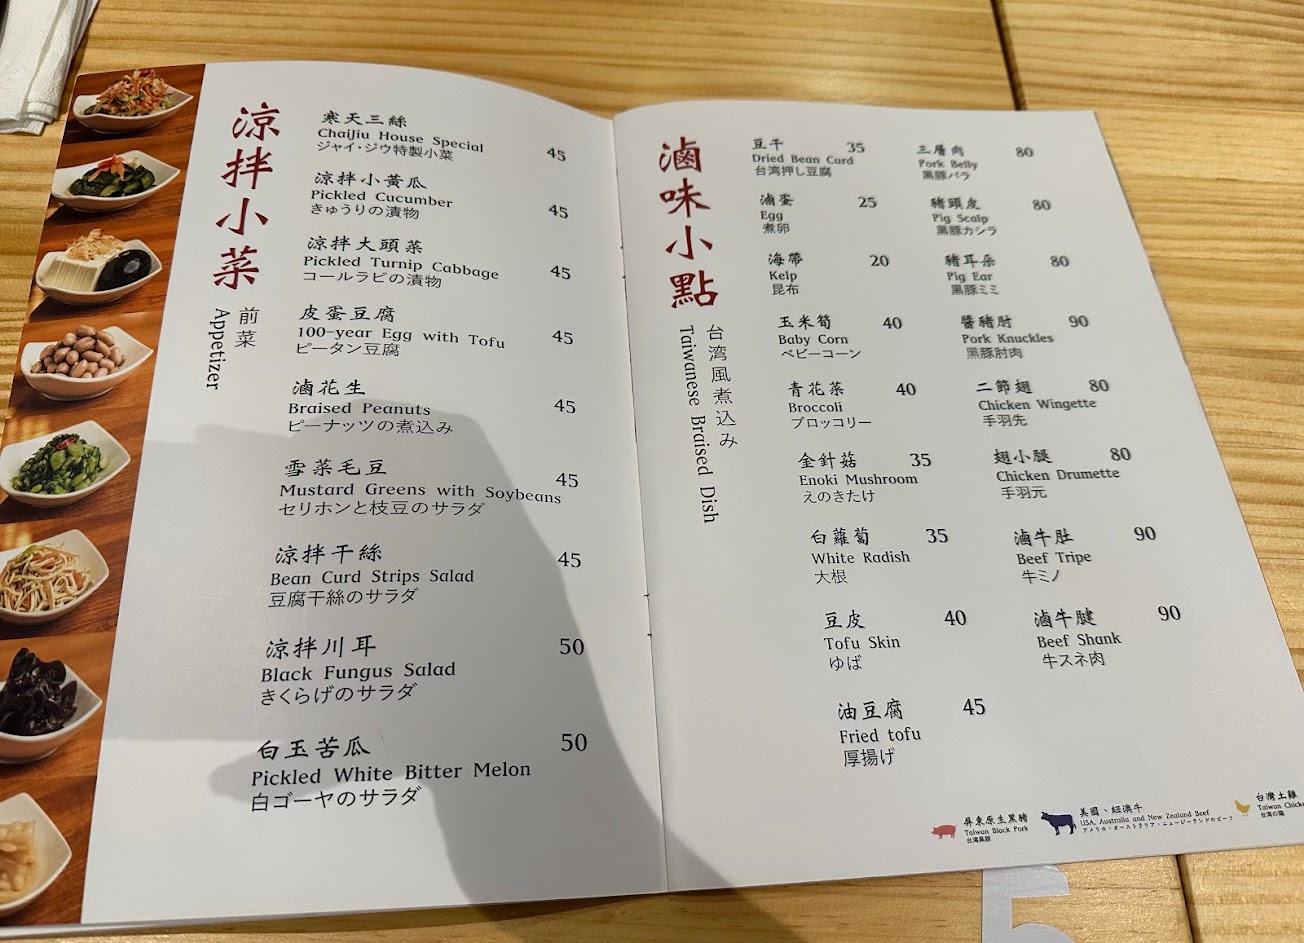 涼拌小菜
前菜
Appetizer
寒天三絲
ChaiJiu House Special 45
ジャイ・ジウ特製小菜
涼拌小黃瓜
Pickled Cucumber 45
きゅうりの漬物
涼拌大頭菜
Pickled Turnip Cabbage 45
コールラビの漬物
皮蛋豆腐
100-year Egg with Tofu 45
ピータン豆腐
滷花生
Braised Peanuts 45
ピーナッツの煮込み
雪菜毛豆
Mustard Greens with Soybeans 45
セリホンと枝豆のサラダ
涼拌干絲
Bean Curd Strips Salad 45
豆腐干絲のサラダ
涼拌川耳 50
Black Fungus Salad
きくらげのサラダ
白玉苦瓜 50
Pickled White Bitter Melon
白ゴーヤのサラダ
滷味小點
台湾風煮込み
Taiwanese Braised Dish
豆干 35
Dried Bean Curd
台湾押し豆腐
滷蛋 25
Egg
煮卵
海帶 20
Kelp
昆布
玉米筍 40
Baby Corn
ベビーコーン
青花菜 40
Broccoli
ブロッコリー
金針菇 35
Enoki Mushroom
えのきたけ
白蘿蔔 35
White Radish
大根
豆皮 40
Tofu Skin
ゆば
油豆腐 45
Fried tofu
厚揚げ
三層肉 80
Pork Belly
黑豚バラ
豬頭皮 80
Pig Scalp
黑豚カシラ
豬耳朵 80
Pig Ear
黑豚ミミ
醬豬肘 90
Pork Knuckles
黑豚肘肉
二節翅 80
Chicken Wingette
手羽先
翅小腿 80
Chicken Drumette
手羽元
滷牛肚 90
Beef Tripe
牛ミノ
滷牛腱 90
Beef Shank
牛スネ肉
屏東原生黑豬
Taiwan Black Pork
台湾黑豚
美國、紐澳牛
USA, Australia and New Zealand Beef
アメリカ・オーストラリア・ニュージーランドのビーフ
台灣土雞
Taiwan Chicke
台湾の鶏
5